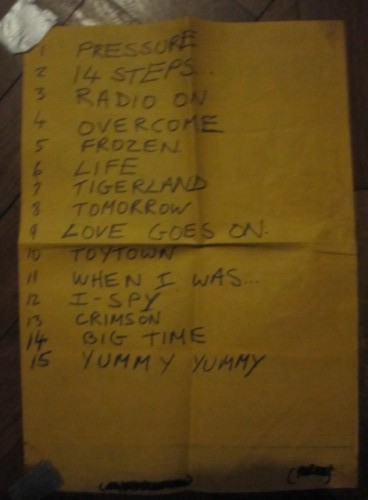 1 PRESSURE
2 14 STEPS..
3 RADIO ON
4 OVERCOME
5 FROZEN
6 LIFE
7 TIGERLAND
8 TOMORROW
9 LOVE GOES ON.
10 TOYTOWN
11 WHEN I WAS...
12 I-SPY
13 CRIMSON
14 BIG TIME
15 YUMMY YUMMY